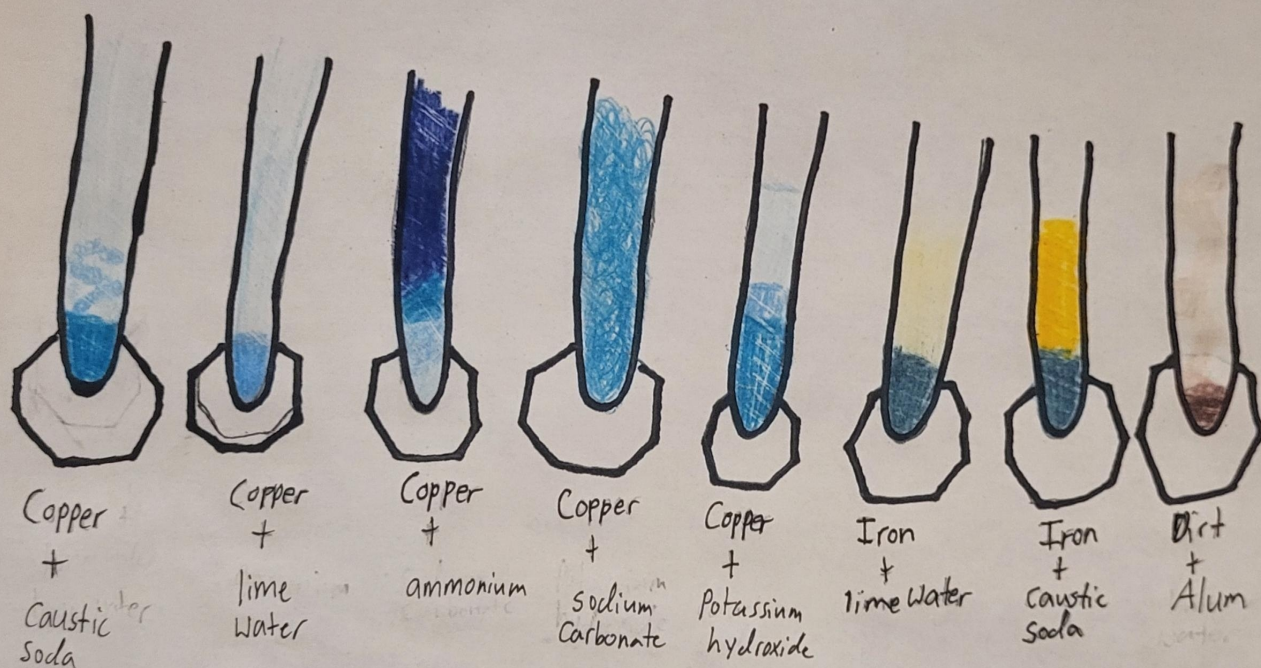 Copper
+
Caustic
Soda
Copper
+
lime
Water
Copper
+
ammonium
Copper
+
Sodium
Carbonate
Copper
+
Potassium
hydroxide
Iron
+
lime Water
Iron
+
Caustic
Soda
Dirt
+
Alum